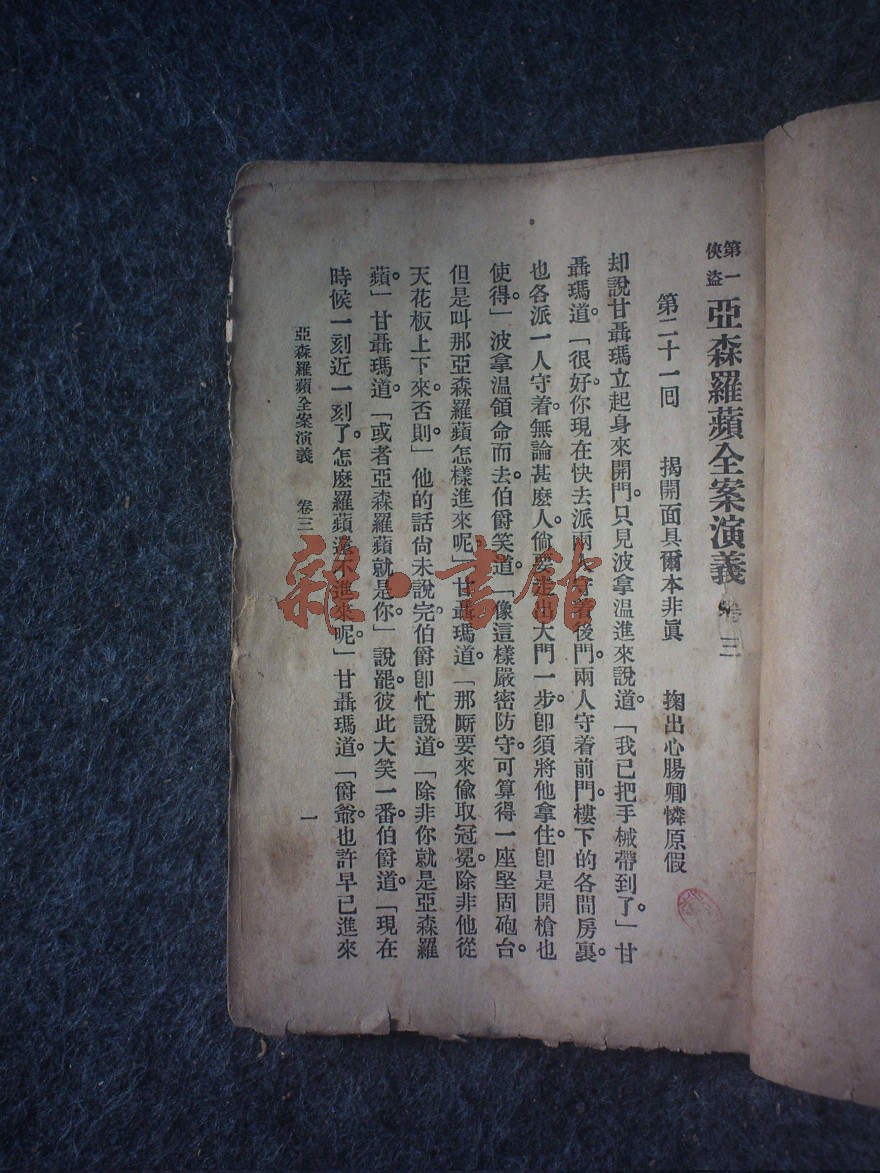 第一
俠盜
亞森羅蘋全案演義 卷三
第二十一囘 揭開面具爾本非眞 掬出心腸卿憐原假
却說甘聶瑪立起身來開門。只見波拿温進來說道。「我已把手械帶到了。」甘
聶瑪道。「很好。你現在快去派兩人守着後門。兩人守着前門。樓下的各間房裏。
也各派一人守着。無論甚麽人。倘要走出大門一步。卽須將他拿住。卽是開槍也
使得。」波拿温領命而去。伯爵笑道。「像這樣嚴密防守。可算得一座堅固砲台。
但是叫那亞森羅蘋怎樣進來呢。」甘聶瑪道。「那厮要來偸取冠冕。除非他從
天花板上下來。否則」他的話尙未說完。伯爵卽忙說道。「除非你就是亞森羅
蘋。」甘聶瑪道。「或者亞森羅蘋就是你。」說罷。彼此大笑一番。伯爵道。「現在
時候一刻近一刻了。怎麽羅蘋還不進來呢。」甘聶瑪道。「爵爺。也許早已進來
亞森羅蘋全案演義 卷三 一
雜·書館